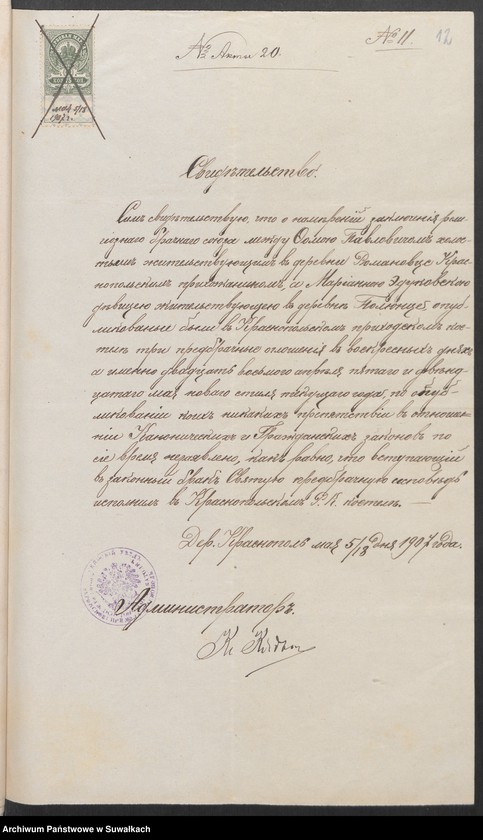 № Акта 20.
№ 11.
12
мая 5/18
1907 г.
Свидѣтельство.
Симъ свидѣтельствую, что о намѣренiи заключенiя рели-
гiознаго брачнаго союза между Павловичемъ холос-
тымъ жительствующимъ въ деревнѣ Романовцѣ Крас-
нопольскимъ прихожаниномъ, а Марiанною
дѣвицею жительствующею въ деревнѣ опуб-
ликованы были въ Краснопольскомъ приходскомъ кос-
телѣ три предбрачныя оглашенiя въ воскресныхъ дняхъ
а именно двадцать восьмого апрѣля пятаго и двѣнад-
цатаго мая новаго стиля текущаго года, по опуб-
ликованiи коихъ никакихъ препятствiй въ отноше-
нiи Каноническихъ и Гражданскихъ законовъ по
сiе время не заявлено, какъ равно, что вступающiй
въ законный бракъ Святую предбрачную исповѣдь
исполнилъ въ Краснопольскомъ Р. К. костелѣ. —
Дер. Краснополь мая 5/18 дня 1907 года.
Администраторъ.
Кс
Archiwum Państwowe w Suwałkach